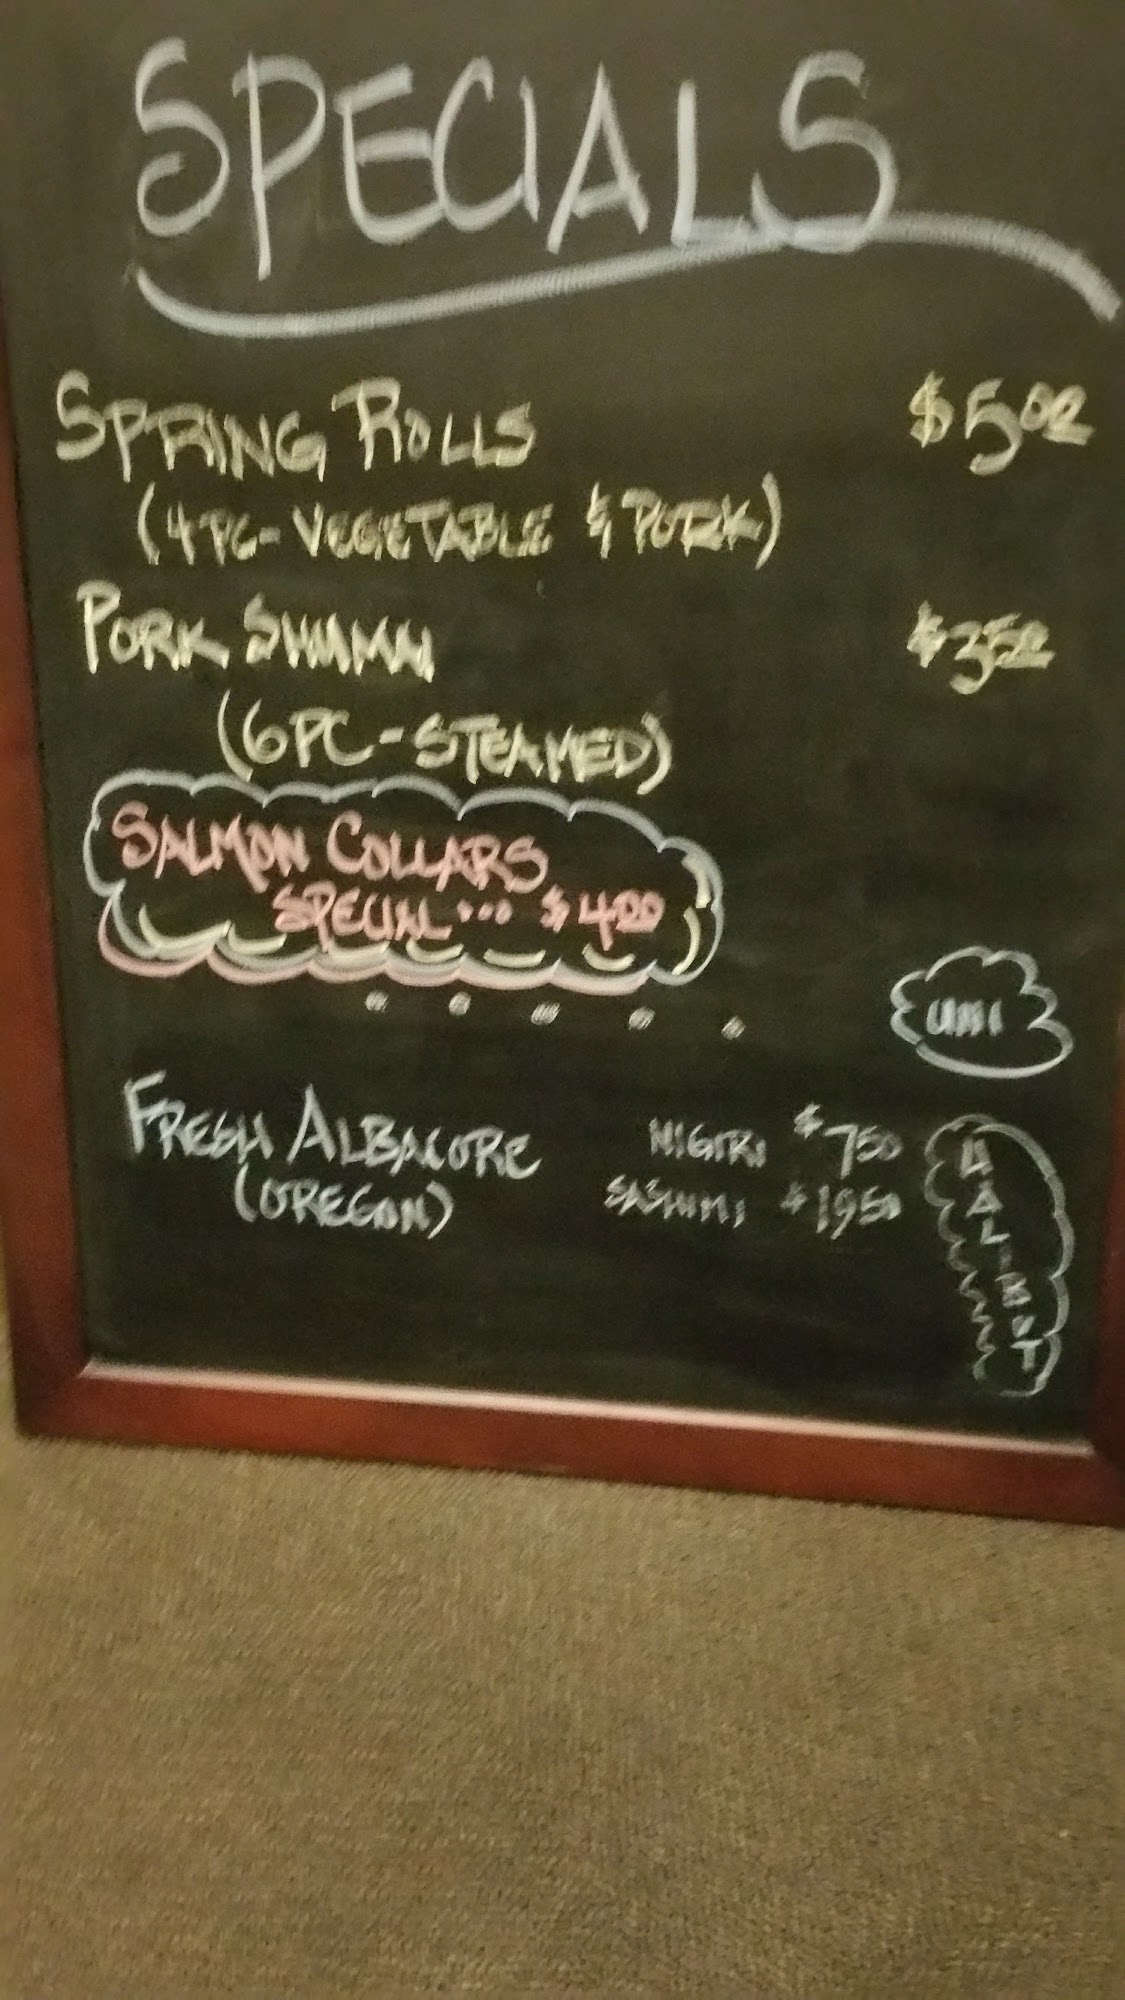 SPECIALS
SPRING ROLLS $5.00
(4PC-VEGETABLE & PORK)
PORK SHUMAI $3.50
(6PC-STEAMED)
SALMON COLLARS
SPECIAL... $4.00
UNI
FRESH ALBACORE NIGIRI $7.50
(OREGON) SASHIMI $19.50
HALIBUT